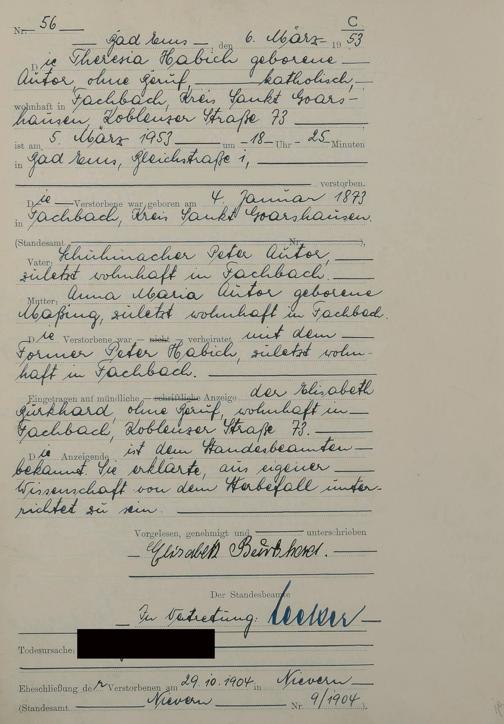 Nr. 56 C
Bad Ems, den 6. März 1953
Die Theresia Habich geborene
Autor, ohne Beruf, katholisch,
wohnhaft in Fachbach, Kreis Sankt Goars-
hausen, Koblenzer Straße 73
ist am 5. März 1953 um 18 Uhr 25 Minuten
in Bad Ems, Bleichstraße 1,
verstorben.
Die Verstorbene war geboren am 4. Januar 1873
in Fachbach, Kreis Sankt Goarshausen.
(Standesamt Nr. ),
Vater: Schuhmacher Peter Autor,
zuletzt wohnhaft in Fachbach.
Mutter: Anna Maria Autor geborene
Maßing, zuletzt wohnhaft in Fachbach.
Die Verstorbene war – nicht – verheiratet mit dem
Former Peter Habich, zuletzt wohn-
haft in Fachbach.
Eingetragen auf mündliche – schriftliche Anzeige der Elisabeth
Burkhard, ohne Beruf, wohnhaft in
Fachbach, Koblenzer Straße 73.
Die Anzeigende ist dem Standesbeamten
bekannt. Sie erklärte, aus eigener
Wissenschaft von dem Sterbefall unter-
richtet zu sein.
Vorgelesen, genehmigt und unterschrieben
Elisabeth Burkhard.
Der Standesbeamte
In Vertretung:
Todesursache:
Eheschließung der Verstorbenen am 29.10.1904 in Nievern
(Standesamt Nievern Nr. 9/1904).